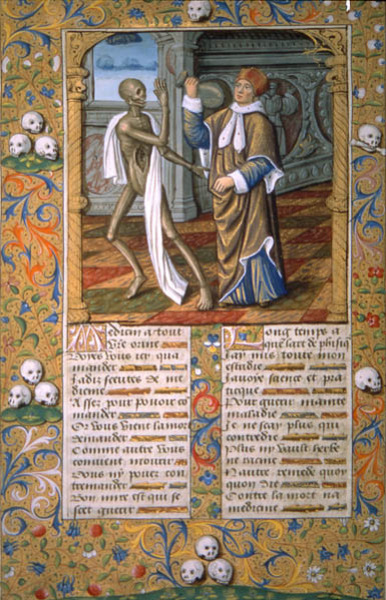 Medecin a tout
Vre orine
Voyes vous icy qua
mander
Jadis sceutes de me
dicine
Assez pour pouoir co
mander
Or vous vient la mort
demander
Comme autre vous
conuient mourir
Vous ny poues con
tremander
Bon mire est qui se
scet guerir
Long temps a
quen lart de phisiq
Jay mis toute mon
estudie
Jauoye science et pra
tique
Pour guerir mainte
maladie
Je ne scay plus que
contredie
Plus ny vault herbe
ne racine
Nautre remede quoy
quon die
Contre la mort na
medicine